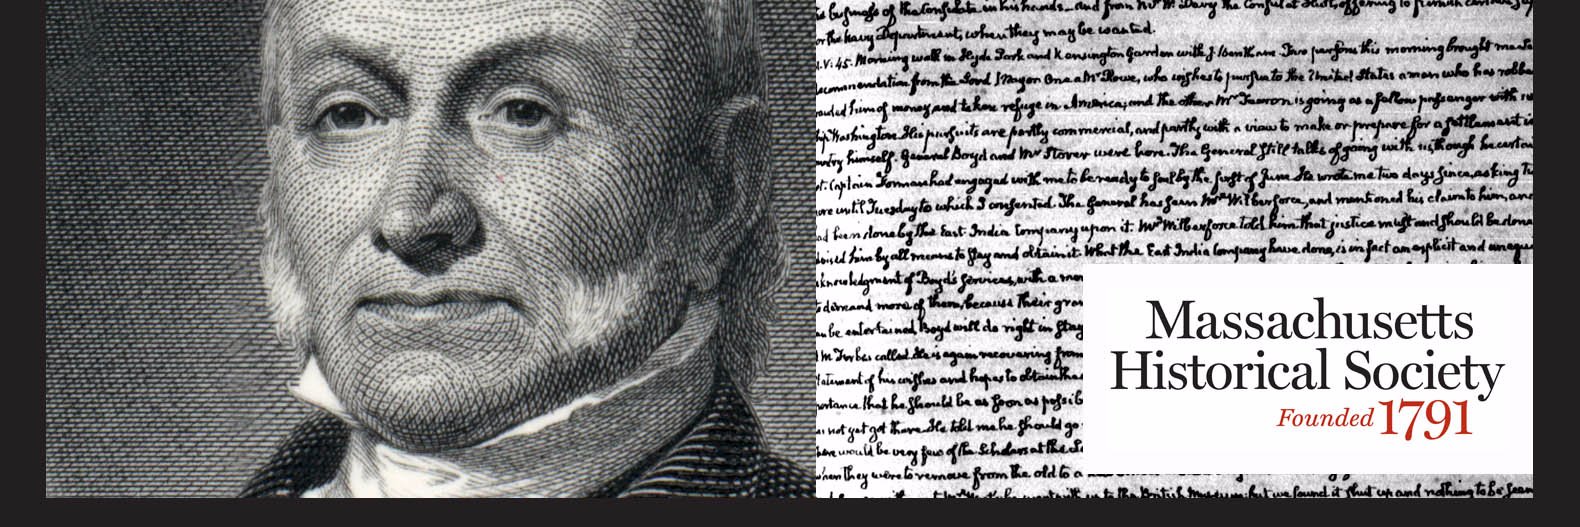 or the Navy Department, when they may be wanted.
V: 45. Morning walk in Hyde Park and Kensington Garden with J. Bentham. Two persons this morning brought me
recommendation from the Lord Mayor One a Mr Rowe, who wishes to pursue to the United States a man who has
him of money, and taken refuge in America; and the other Mr Fearon is going as a fellow passenger with
Washington. His pursuits are partly commercial, and partly with a view to make or prepare for a settlement
himself. General Boyd and Mr Storer were here. The General still talks of going with us, though he
Captain Forman had engaged with me to be ready to sail by the first of June. He wrote me two days since, asking
until Tuesday to which I consented. The General has seen Mr Wilberforce, and mentioned his claim to him, and
had been done by the East India Company upon it. Mr Wilberforce told him that justice must and should be done
him by all means to stay and obtain it. What the East India Company have done, is in fact an explicit and
acknowledgment of Boyd's services, with a
demand more of them, because their
be entertained, Boyd will do right in
Mr Forbes called. He is again recovering from
statement of his wishes and hopes to obtain the
that he should be as soon as
not yet got there. He told me he should go
would be very few of the Scholars at the
when they were to remove from the old to a
to the British Museum; but we found it shut up and nothing to be seen
Massachusetts
Historical Society
Founded 1791